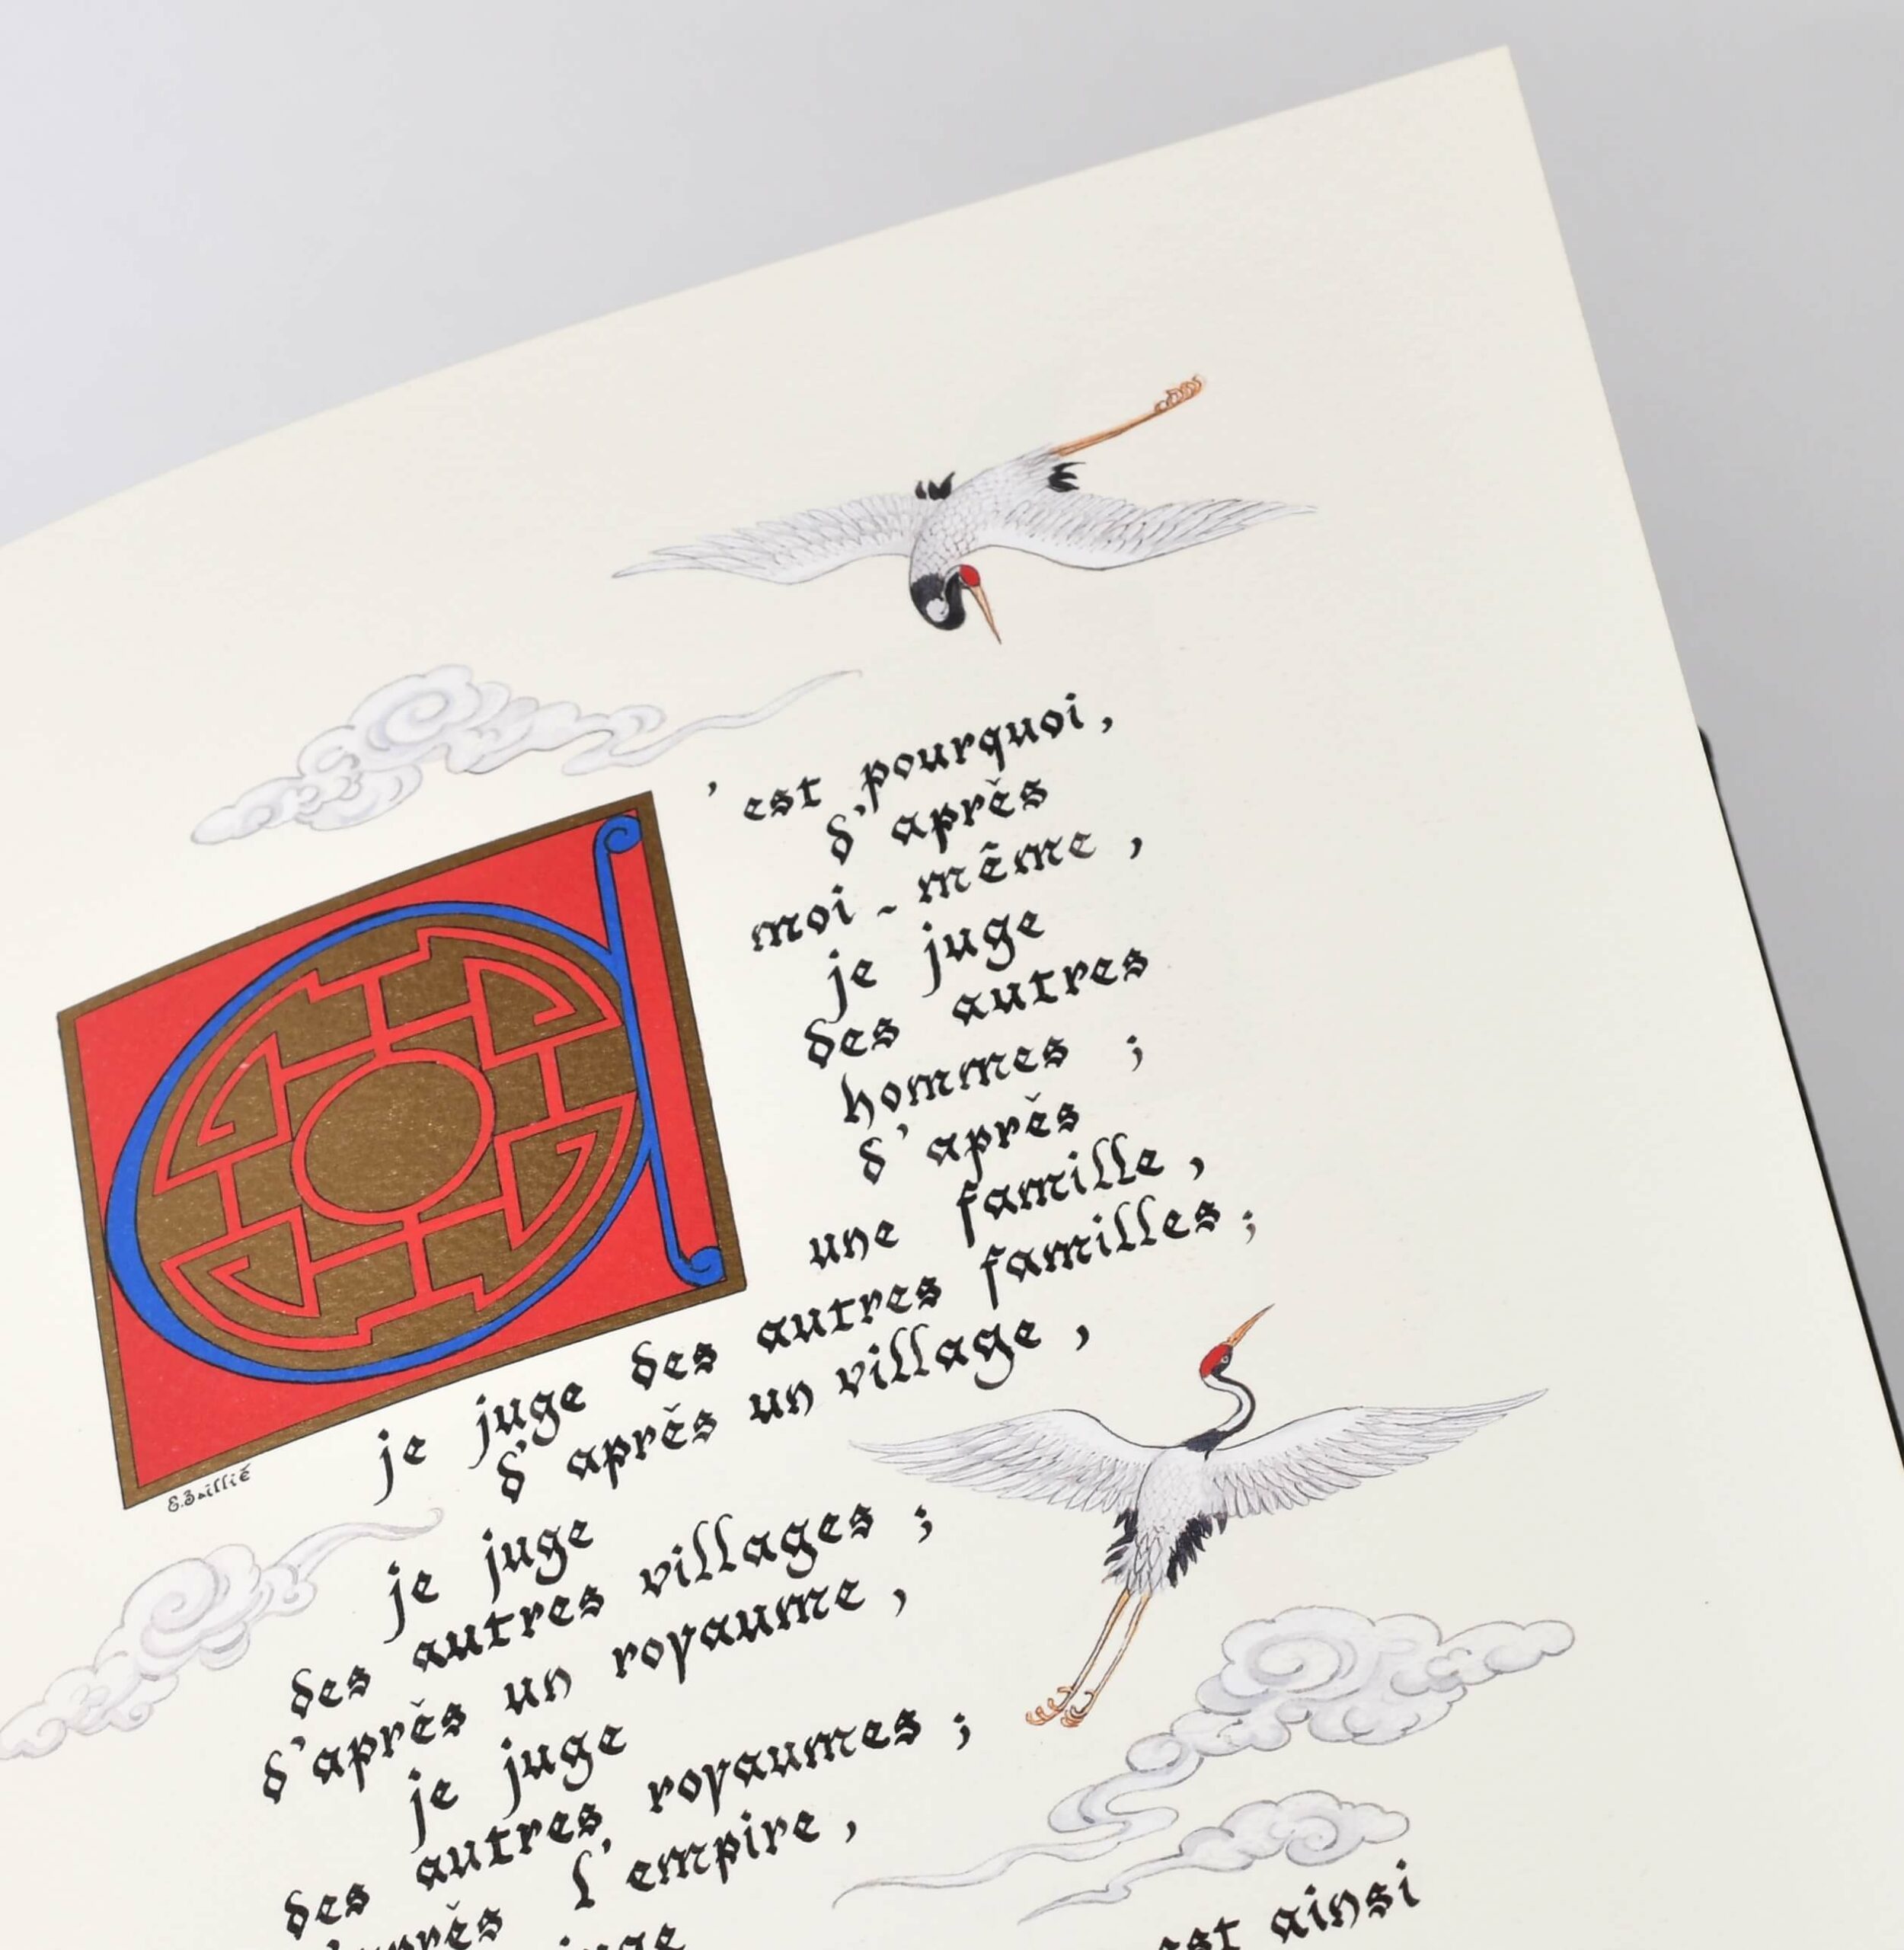 C'est pourquoi,
d'après
moi-même,
je juge
des autres
hommes ;
d'après
une famille,
je juge des autres familles ;
d'après un village,
E. Baillié
je juge
des autres villages ;
d'après un royaume,
je juge
des autres royaumes ;
d'après l'empire,
juge
est ainsi